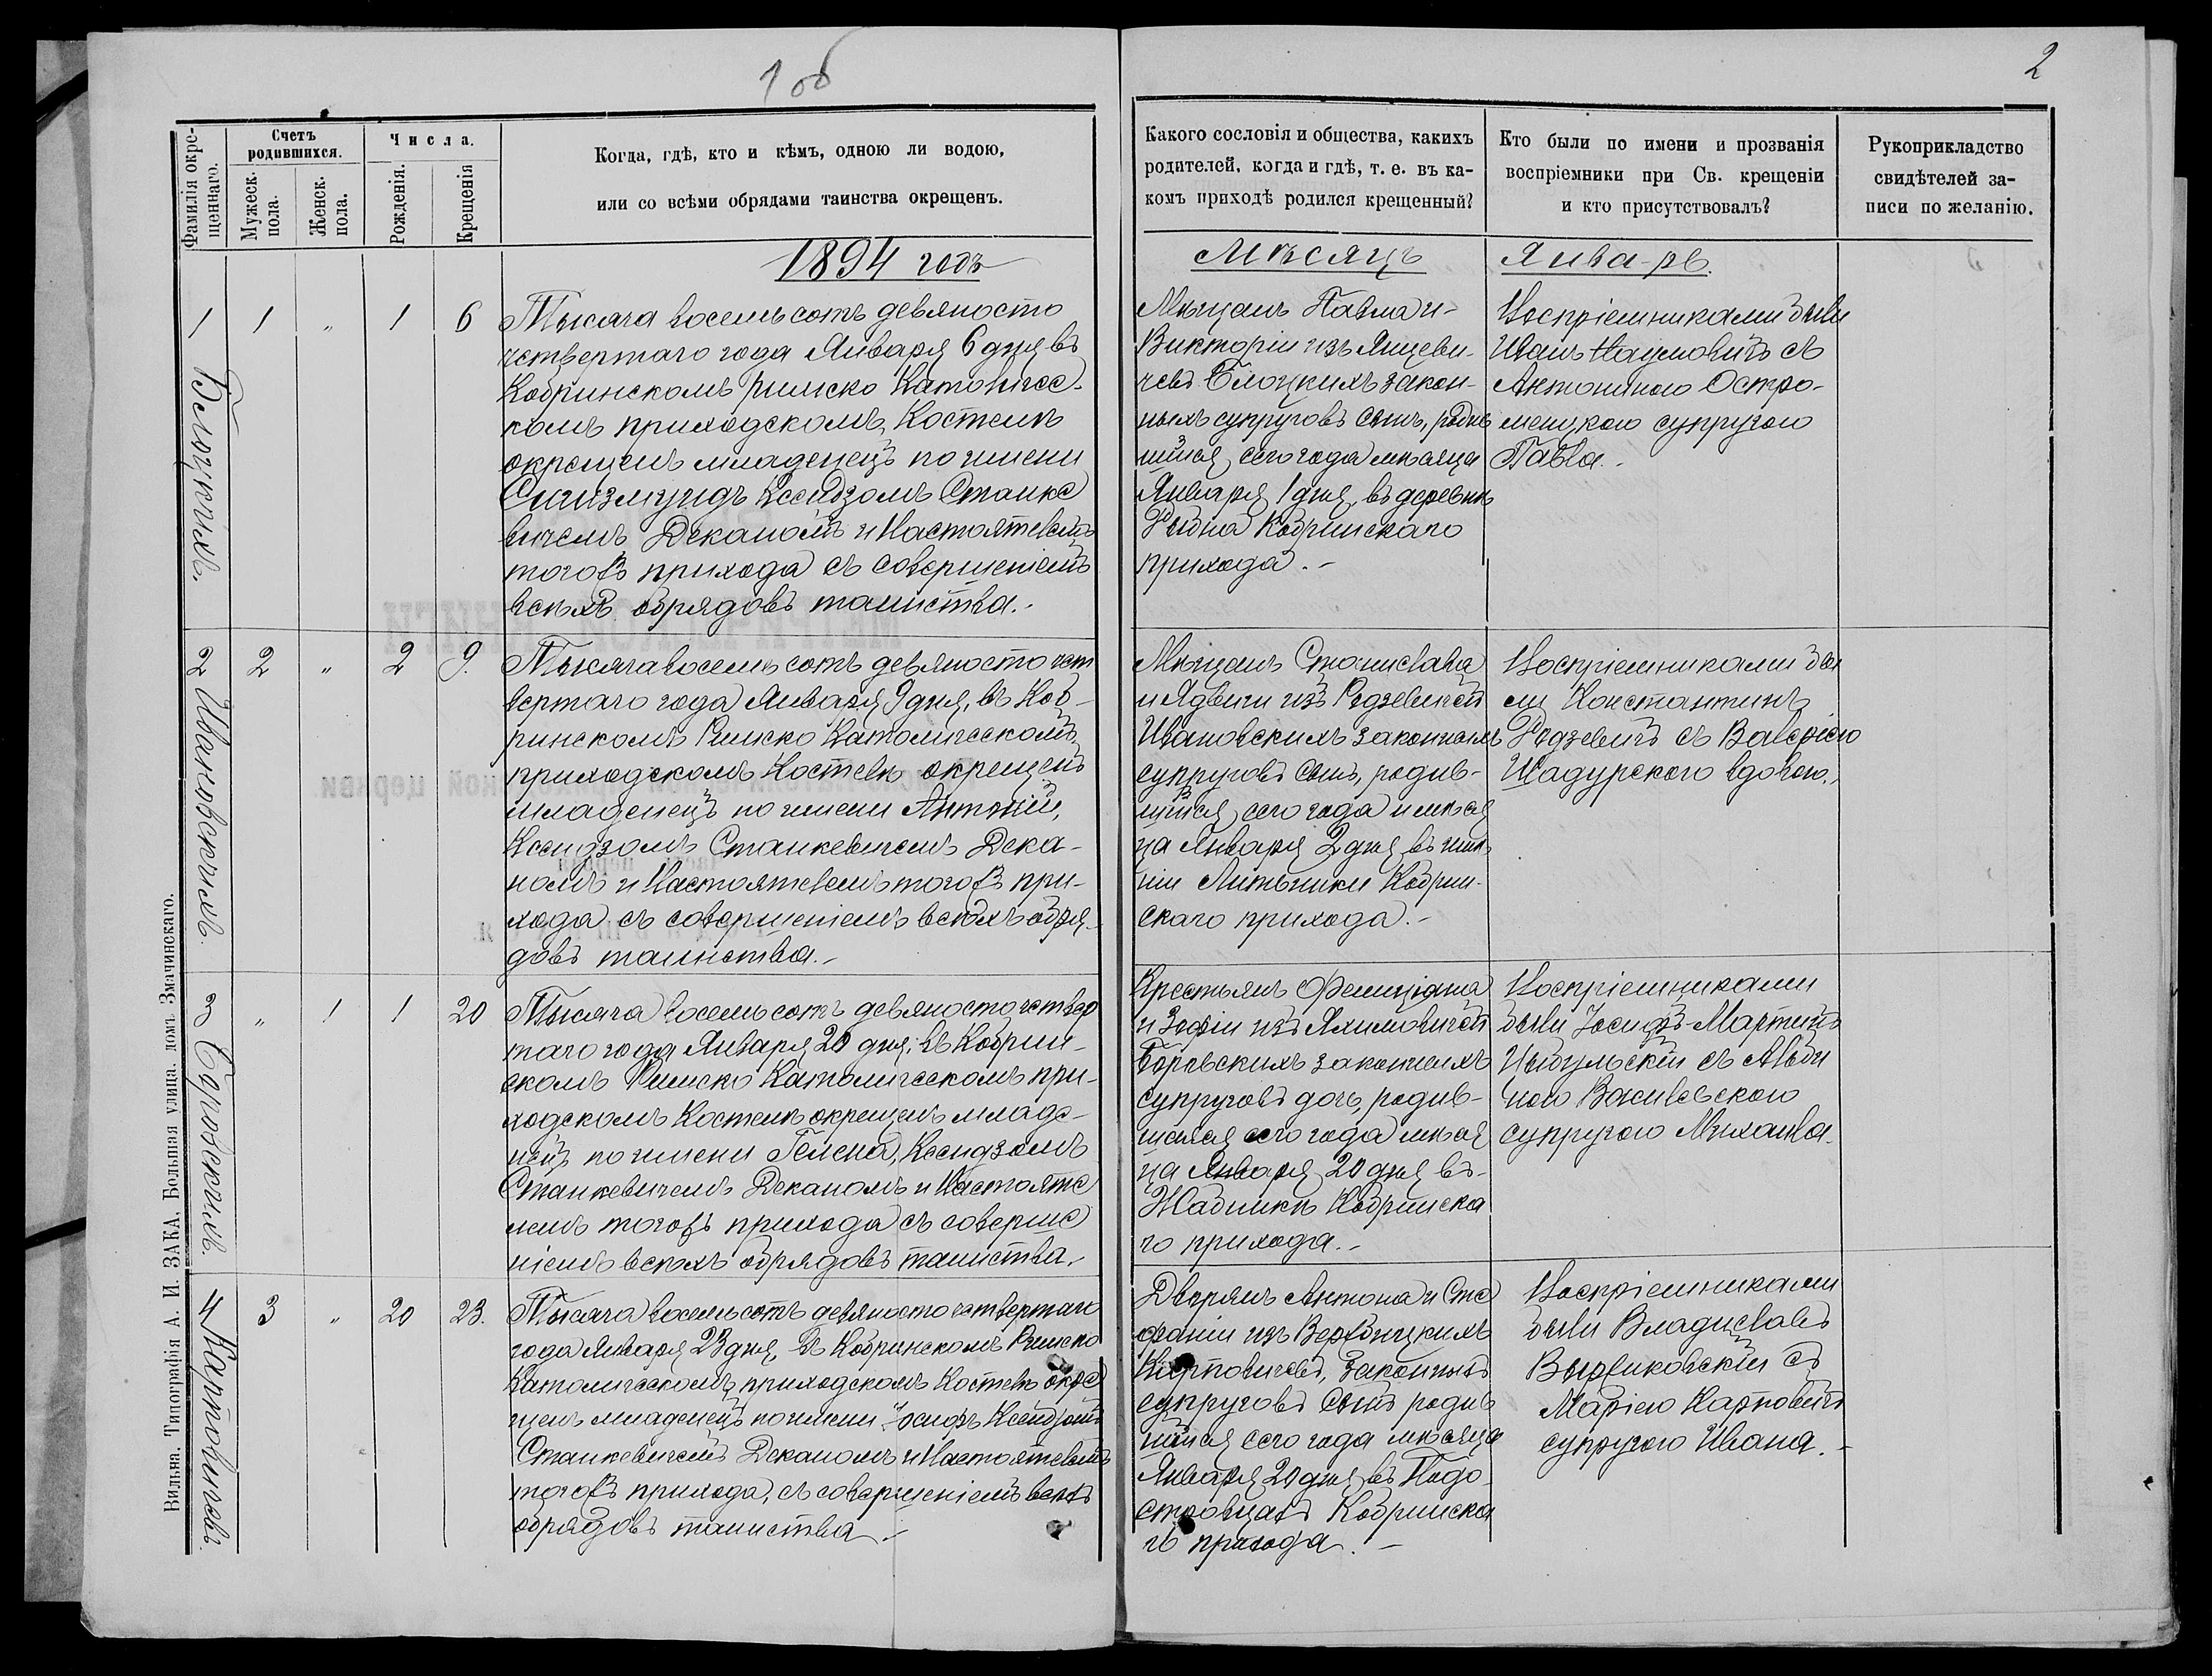 1об
2
Фамилія окре-
щеннаго.
Счетъ
родившихся.
Мужеск.
пола.
Женск.
пола.
Числа.
Рожденія.
Крещенія
Когда, гдѣ, кто и кѣмъ, одною ли водою,
или со всѣми обрядами таинства окрещенъ.
Какого сословія и общества, какихъ
родителей, когда и гдѣ, т. е. въ ка-
комъ приходѣ родился крещенный?
Кто были по имени и прозванія
воспріемники при Св. крещеніи
и кто присутствовалъ?
Рукоприкладство
свидѣтелей за-
писи по желанію.
1894 годъ
Мѣсяцъ
Январь.
1
Белоцкихъ.
1
"
1
6
Тысяча восемь сотъ девяносто
четвертаго года Января 6 дня въ
Кобринскомъ Римско Католичес-
комъ приходскомъ Костелѣ
окрещенъ младенецъ по имени
Сигизмундъ Ксендзомъ Станке
вичемъ Деканомъ и Настоятелемъ
тогожъ прихода съ совершеніемъ
всѣхъ обрядовъ таинства.-
Мѣщанъ Павла и-
Викторіи изъ
Белоцкихъ закон-
ныхъ супруговъ сынъ, родив
шійся сего года мѣсяца
Января 1 дня, въ деревнѣ
Кобринскаго
прихода.-
Воспріемниками были
Иванъ Наумовичъ съ
Антониною Остро-
мецкою супругою
Павла.-
2
Ивановскихъ.
2
"
2
9.
Тысяча восемь сотъ девяносто чет
вертаго года Января 9 дня, въ Коб-
ринскомъ Римско Католическомъ
приходскомъ Костелѣ окрещенъ
младенецъ по имени Антоній,
Ксендзомъ Станкевичемъ Дека-
номъ и Настоятелемъ тогожъ при-
хода съ совершеніемъ всѣхъ обря-
довъ таинства.-
Мѣщанъ Станислава
и Ядвиги изъ Редзевичей
Ивановскихъ законныхъ
супруговъ сынъ, родив-
шійся сего года мѣся
ца Января 2 дня въ имѣ
ніи Кобрин-
скаго прихода.-
Воспріемниками бы
ли Константинъ
Редзевичъ съ Валеріею
Шадурскою вдовою.-
3
Боровскихъ.
"
1
1
20
Тысяча восемь сотъ девяносто четвер
таго года Января 20 дня, въ Кобрин-
скомъ Римско Католическомъ при-
ходскомъ Костелѣ окрещенъ младе-
нецъ по имени Гелена, Ксендзомъ
Станкевичемъ Деканомъ и Настояте
лемъ тогожъ прихода съ соверше
ніемъ всѣхъ обрядовъ таинства.-
Крестьянъ Фелиціяна
и Зофіи изъ Якимовичей
Боровскихъ законныхъ
супруговъ дочь, родив-
шаяся сего года мѣся
ца Января 20 дня въ-
Жабинкѣ Кобринска
го прихода.-
Воспріемниками
были Іосифъ-Мартинъ
Цыбульскій съ Альби
ною Василевскою
супругою Михаила.
4
Карповичевъ.
3
"
20
23.
Тысяча восемь сотъ девяносто четвертаго
года Января 23 дня, въ Кобринскомъ Римско
Католическомъ приходскомъ Костелѣ окре
щенъ младенецъ по имени Іосифъ Ксендзомъ
Станкевичемъ Деканомъ и Настоятелемъ
тогожъ прихода, съ совершеніемъ всѣхъ
обрядовъ таинства.-
Дворянъ Антона и Сте
фаніи изъ Вербицкихъ
Карповичевъ, законныхъ
супруговъ сынъ родив
шійся сего года мѣсяца
Января 20 дня въ Подо-
Кобринска
го прихода.-
Воспріемниками
были Владиславъ
съ
Маріею Карповичъ
супругою Ивана.-
Вильна. Типографія А. И. ЗАКА, Большая улица, домъ Змачинскаго.